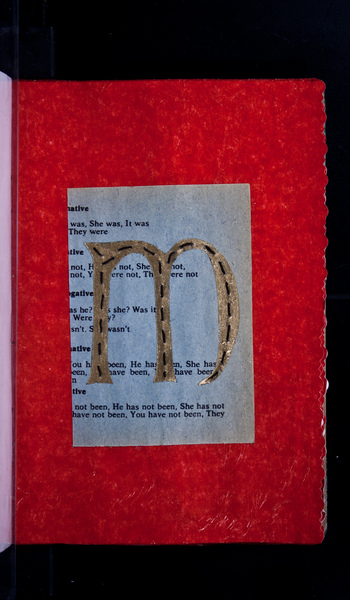 native
was, She was, It was
They were
tive
not, H s not, She not,
not, Y ere not, Th were not
gative
as he? s she? Was it
Were y?
sn't. S wasn't
native
ou h been, He ha en, She has
een, have been, have been
n
tive
not been, He has not been, She has not
have not been, You have not been, They
m